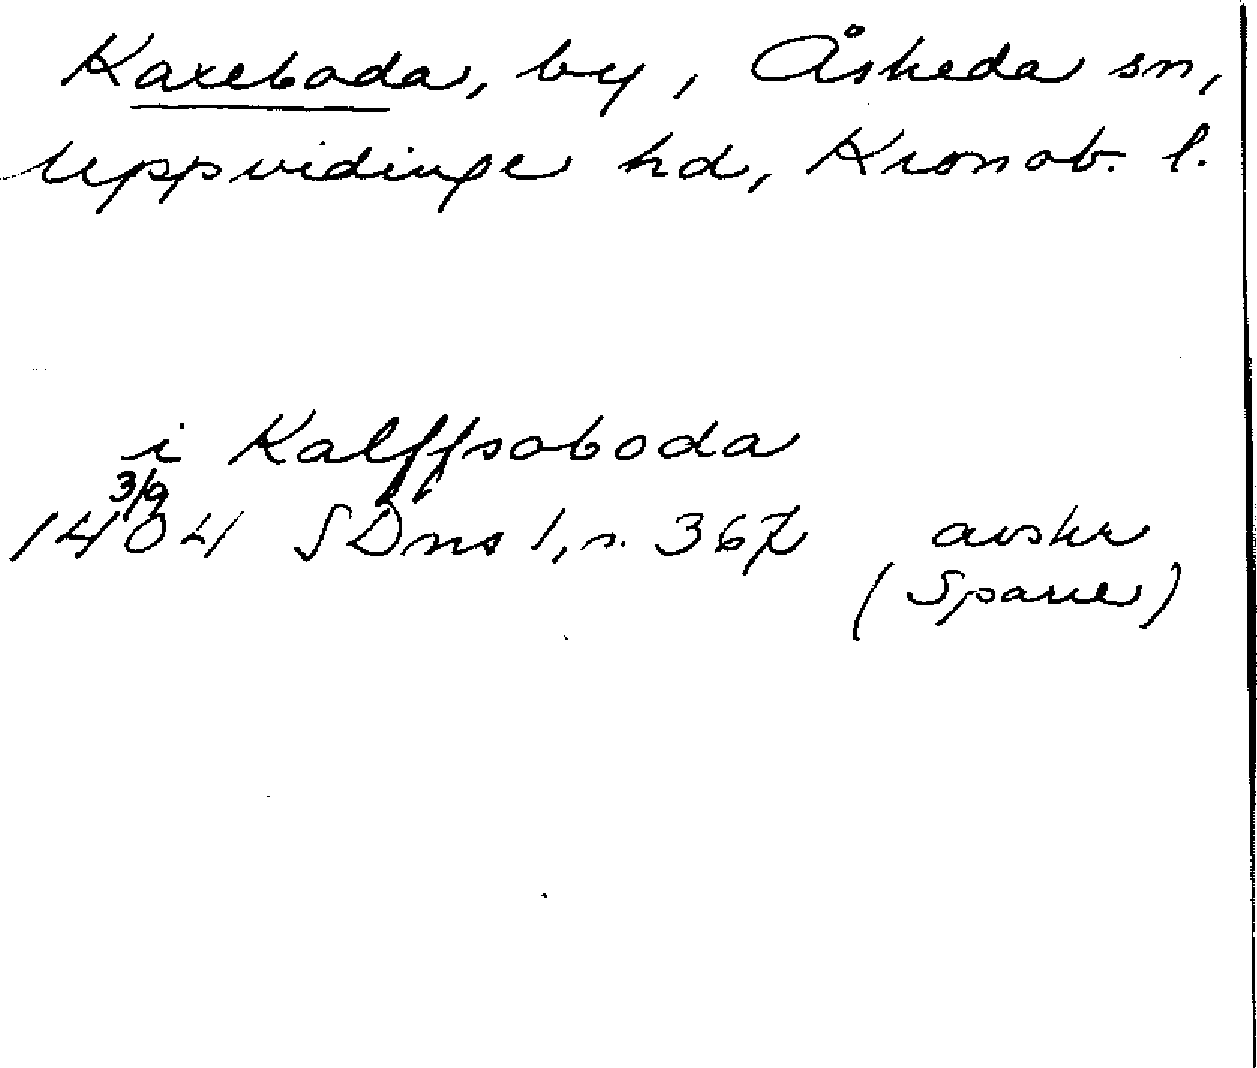 Kaxeboda, by, Åsheda sn,
Uppvidinge hd, Kronob. l.
i Kalffsoboda
3/9
1404 SDns 1, s. 367 avskr
(Sparre)